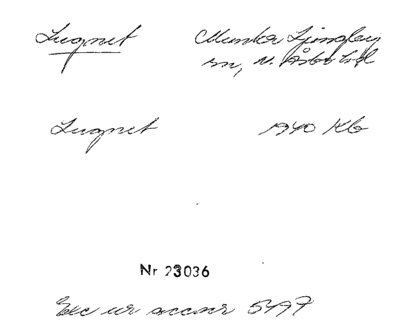 Lugnet Munka Ljungby
sn, N. Åsbo hd
Lugnet 1940 Kb
Nr 23036
Exc ur accnr 5497